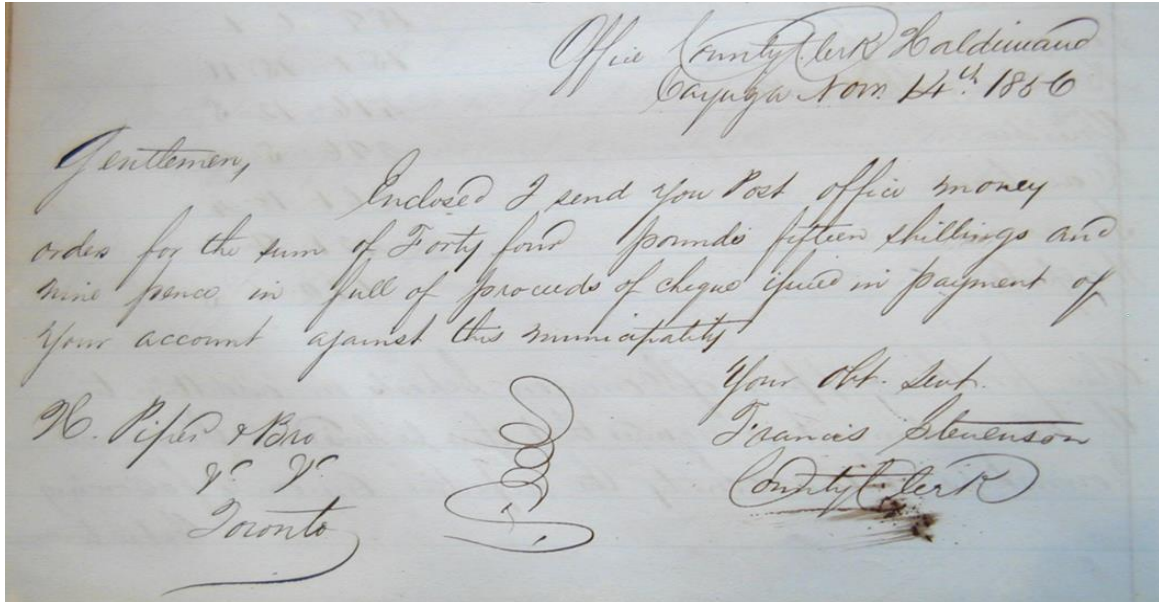 Office County Clerk Haldimand
Cayuga Nov. 14th 1856
Gentlemen,
Enclosed I send you Post office money
order for the sum of Forty four pounds fifteen shillings and
nine pence in full of proceeds of cheque issued in payment of
your account against this municipality
Your Obt. Servt.
Francis Stevenson
County Clerk
H. Piper & Bro
Toronto